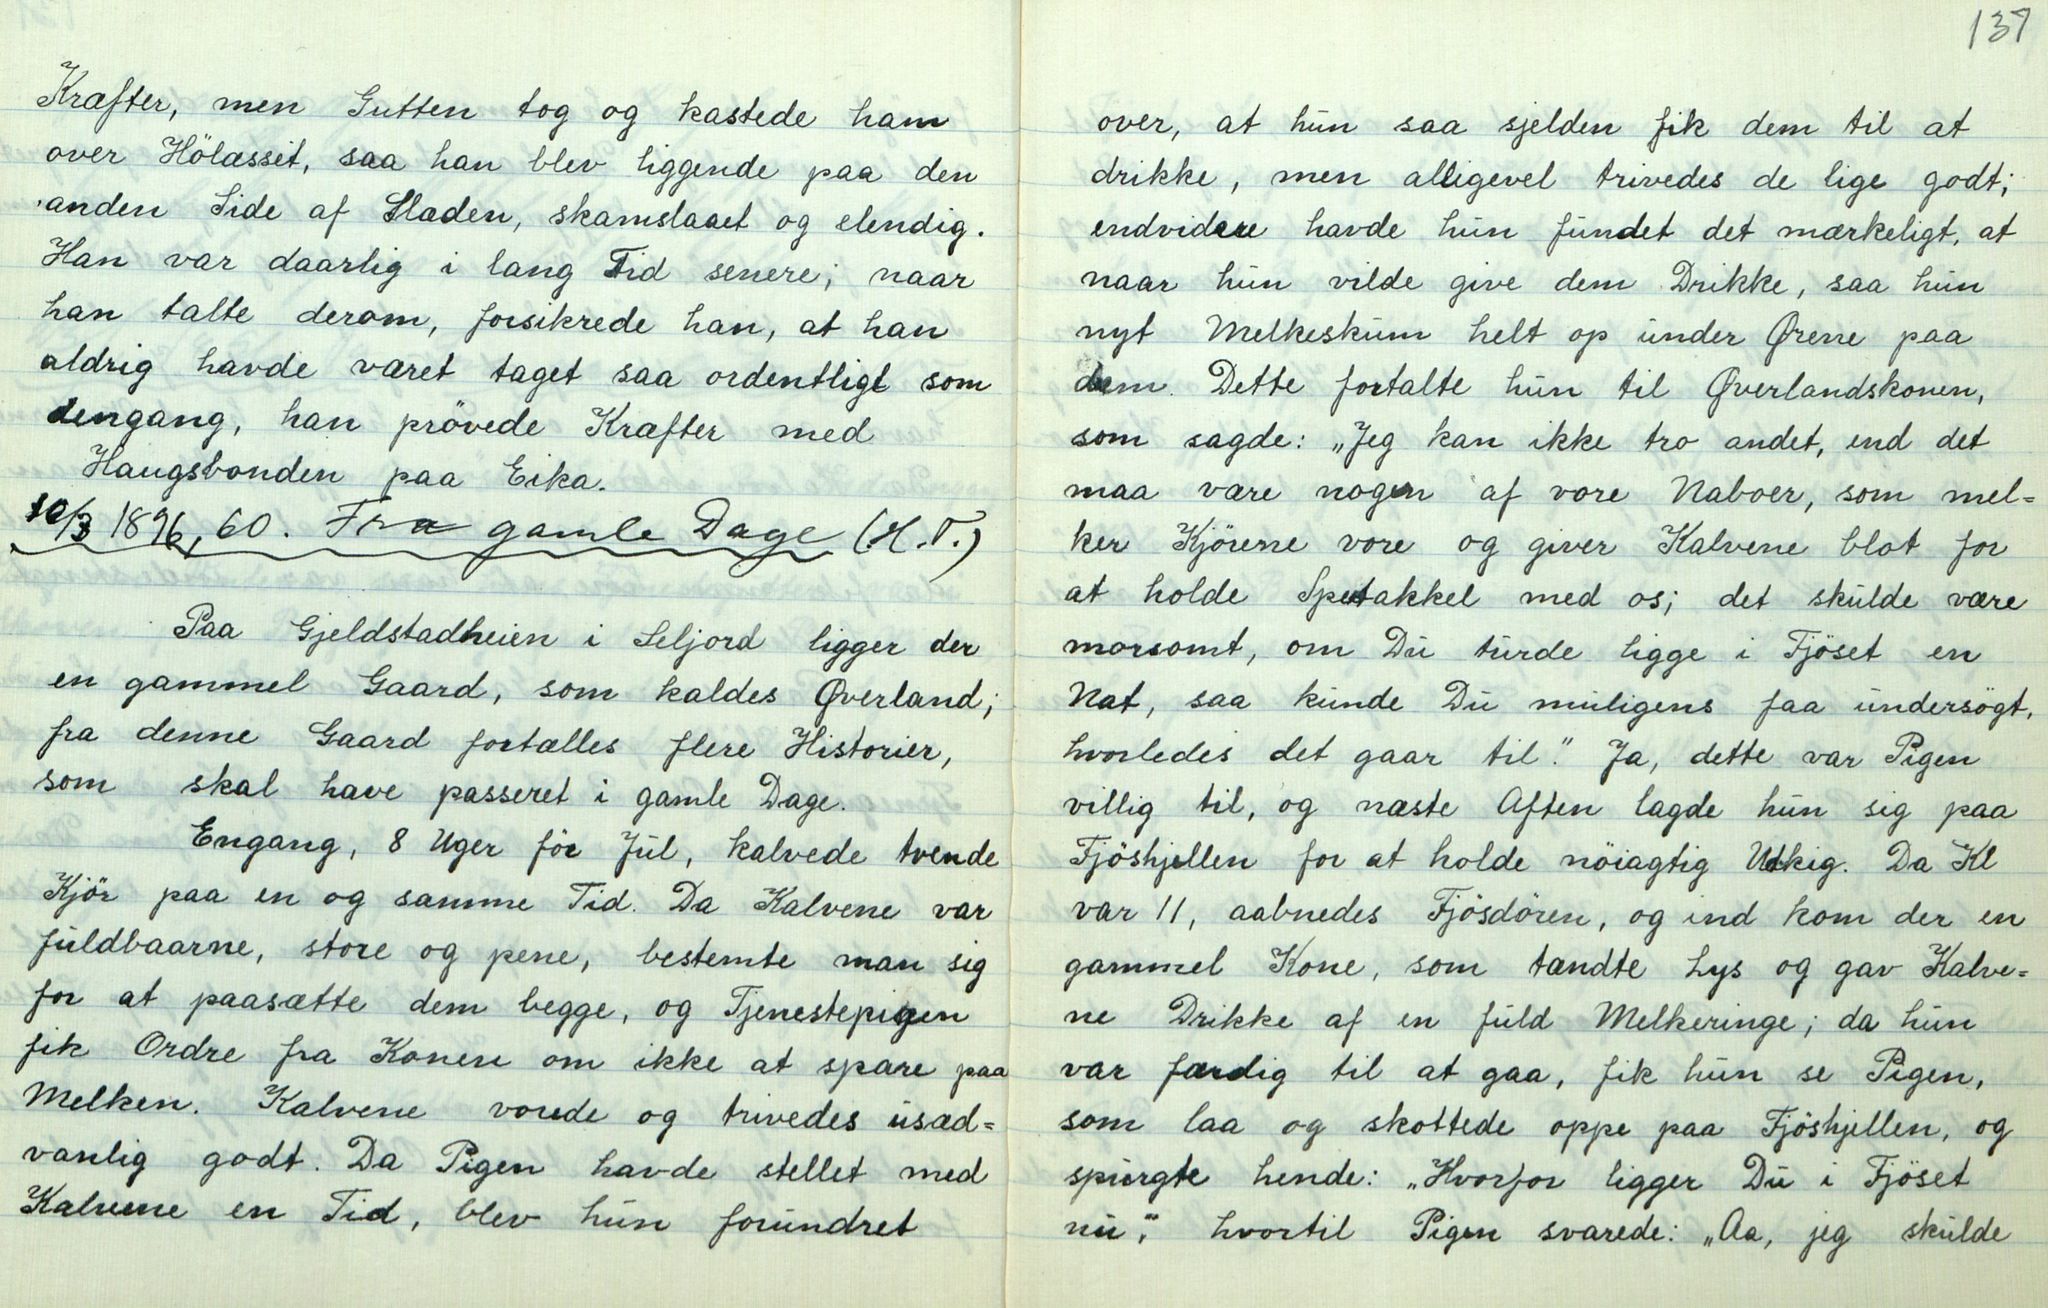 Kræfter, men Gutten tog og kastede ham
over Hölæsset, saa han blev liggende paa den
anden Side af Slæden, skamslaaet og elendig.
Han var daarlig i lang Tid senere; naar
han talte derom, forsikrede han, at han
aldrig havde været taget saa ordentligt som
dengang, han prövede Kræfter med
Haugsbonden paa Eika.
10/3 1896, 60. Fra gamle Dage (H.T.)
Paa Gjeldstadheien i Seljord ligger der
en gammel Gaard, som kaldes Øverland;
fra denne Gaard fortælles flere Historier,
som skal have passeret i gamle Dage.
Engang, 8 Uger för Jul, kalvede tvende
Kjör paa en og samme Tid. Da Kalvene var
fuldbaarne, store og pene, bestemte man sig
for at paasætte dem begge, og Tjenestepigen
fik Ordre fra Konen om ikke at spare paa
Melken. Kalvene voxede og trivedes usæd=
vanlig godt. Da Pigen havde stellet med
Kalvene en Tid, blev hun forundret
137
over, at hun saa sjelden fik dem til at
drikke, men alligevel trivedes de lige godt;
endvidere havde hun fundet det mærkeligt, at
naar hun vilde give dem Drikke, saa hun
nyt Melkeskum helt op under Ørene paa
dem. Dette fortalte hun til Øverlandskonen,
som sagde: „Jeg kan ikke tro andet, end det
maa være nogen af vore Naboer, som mel=
ker Kjörene vore og giver Kalvene blot for
at holde Spetakkel med os; det skulde være
morsomt, om Du turde ligge i Fjöset en
Nat, saa kunde Du muligens faa undersögt,
hvorledes det gaar til." Ja, dette var Pigen
villig til, og næste Aften lagde hun sig paa
Fjöshjellen for at holde nöiagtig Udkig. Da Kl
var 11, aabnedes Fjösdören, og ind kom der en
gammel Kone, som tændte Lys og gav Kalve=
ne Drikke af en fuld Melkeringe; da hun
var færdig til at gaa, fik hun se Pigen,
som laa og skottede oppe paa Fjöshjellen, og
spurgte hende: „Hvorfor ligger Du i Fjöset
nu", hvortil Pigen svarede: „Aa, jeg skulde